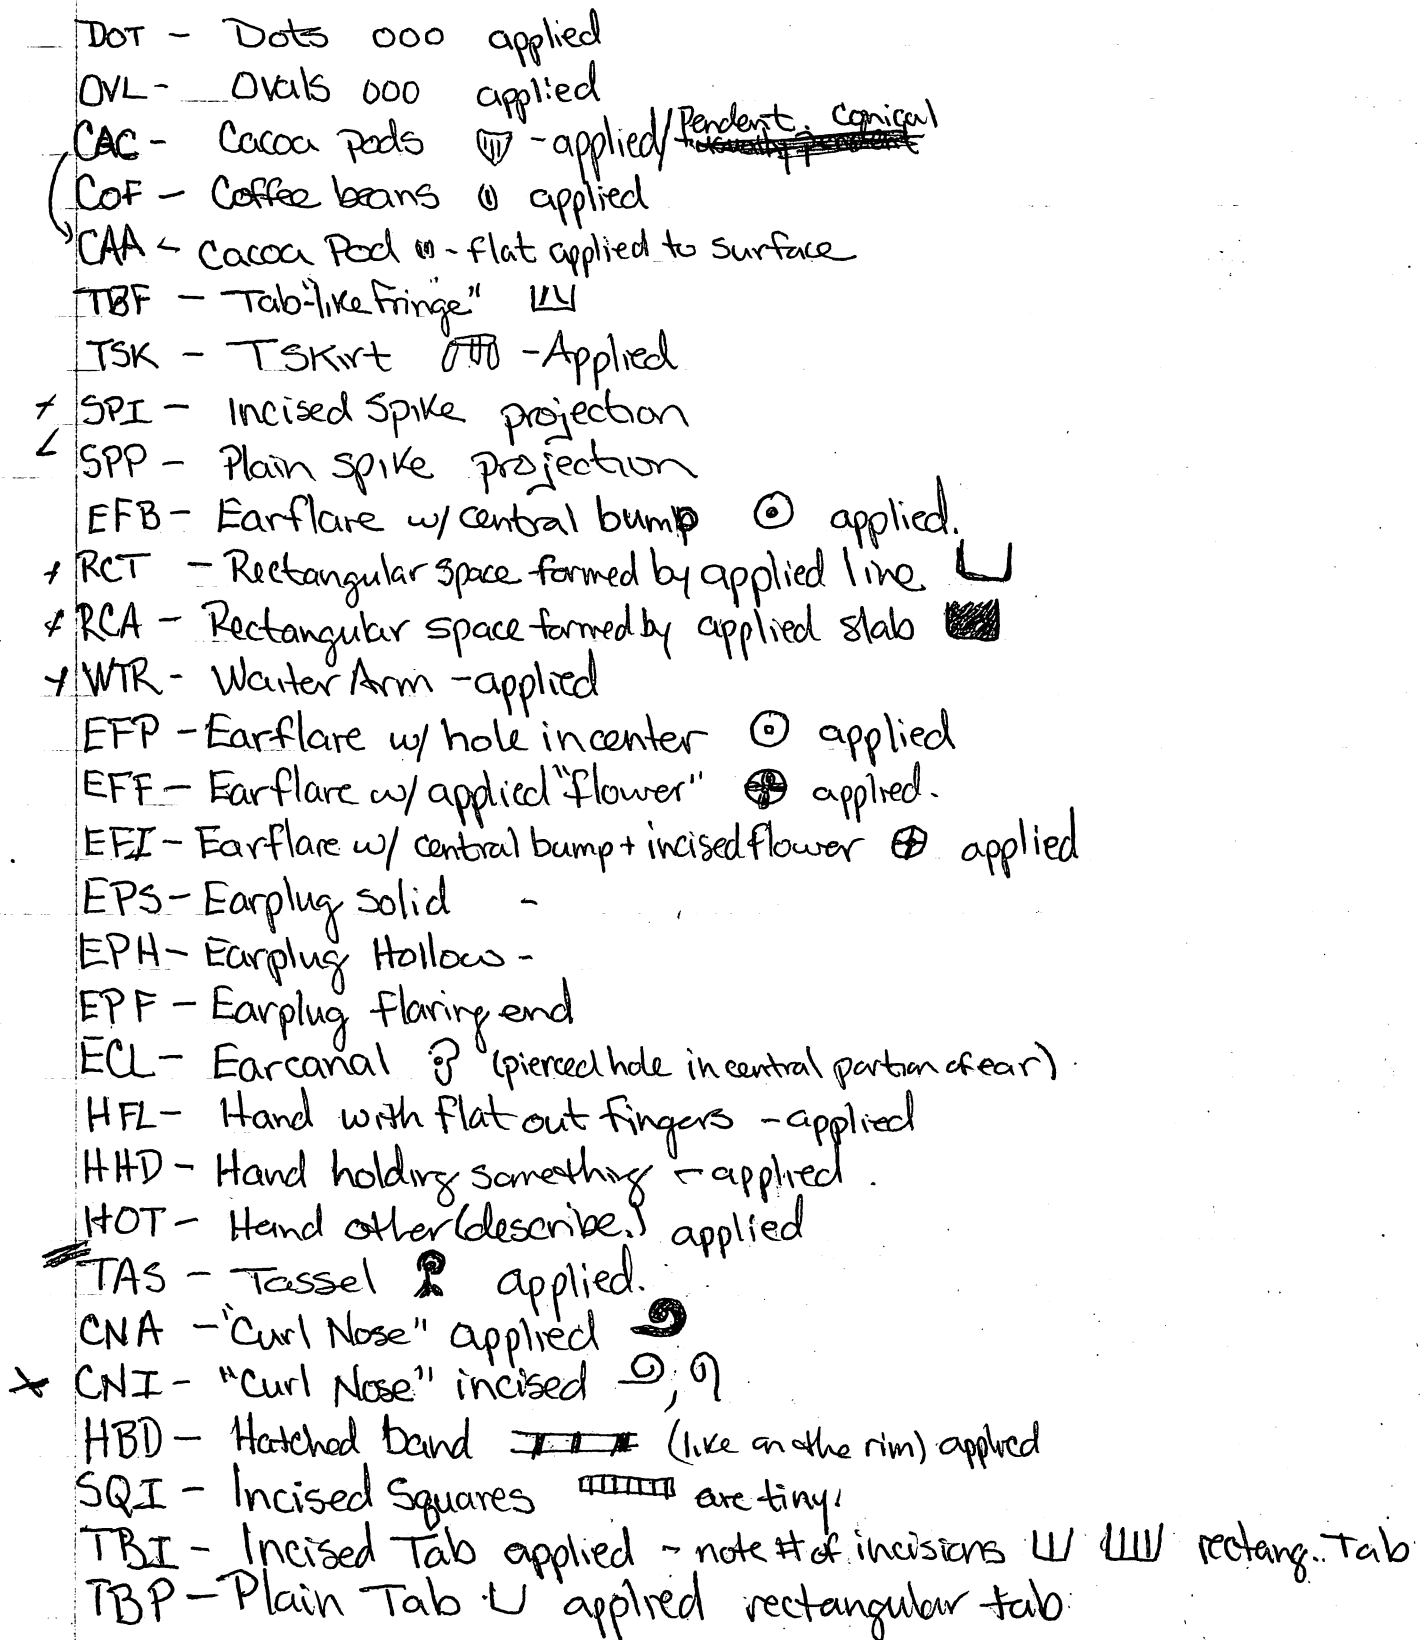 DOT - Dots 000 applied
OVL - Ovals 000 applied
CAC - Cacoa Pods - applied/Pendent. Conical
COF - Coffee beans applied
CAA - Cacoa Pod - flat applied to surface
TBF - Tab "like Fringe"
TSK - TSKirt - Applied
SPI - Incised Spike projection
SPP - Plain spike projection
EFB - Earflare w/ central bump applied.
RCT - Rectangular space formed by applied line
RCA - Rectangular space formed by applied slab
WTR - Waiter Arm - applied
EFP - Earflare w/ hole in center applied
EFF - Earflare w/ applied "flower" applied.
EFI - Earflare w/ central bump + incised flower applied
EPS - Earplug solid -
EPH - Earplug Hollow -
EPF - Earplug flaring end
ECL - Earcanal (pierced hole in central portion of ear)
HFL - Hand with flat out fingers - applied
HHD - Hand holding something - applied.
HOT - Hand other (describe.) applied
TAS - Tassel applied.
CNA - "Curl Nose" applied
CNI - "Curl Nose" incised
HBD - Hatched band (like on the rim) applied
SQI - Incised Squares are tiny.
TBI - Incised Tab applied - note # of incisions rectang.. Tab
TBP - Plain Tab applied rectangular tab